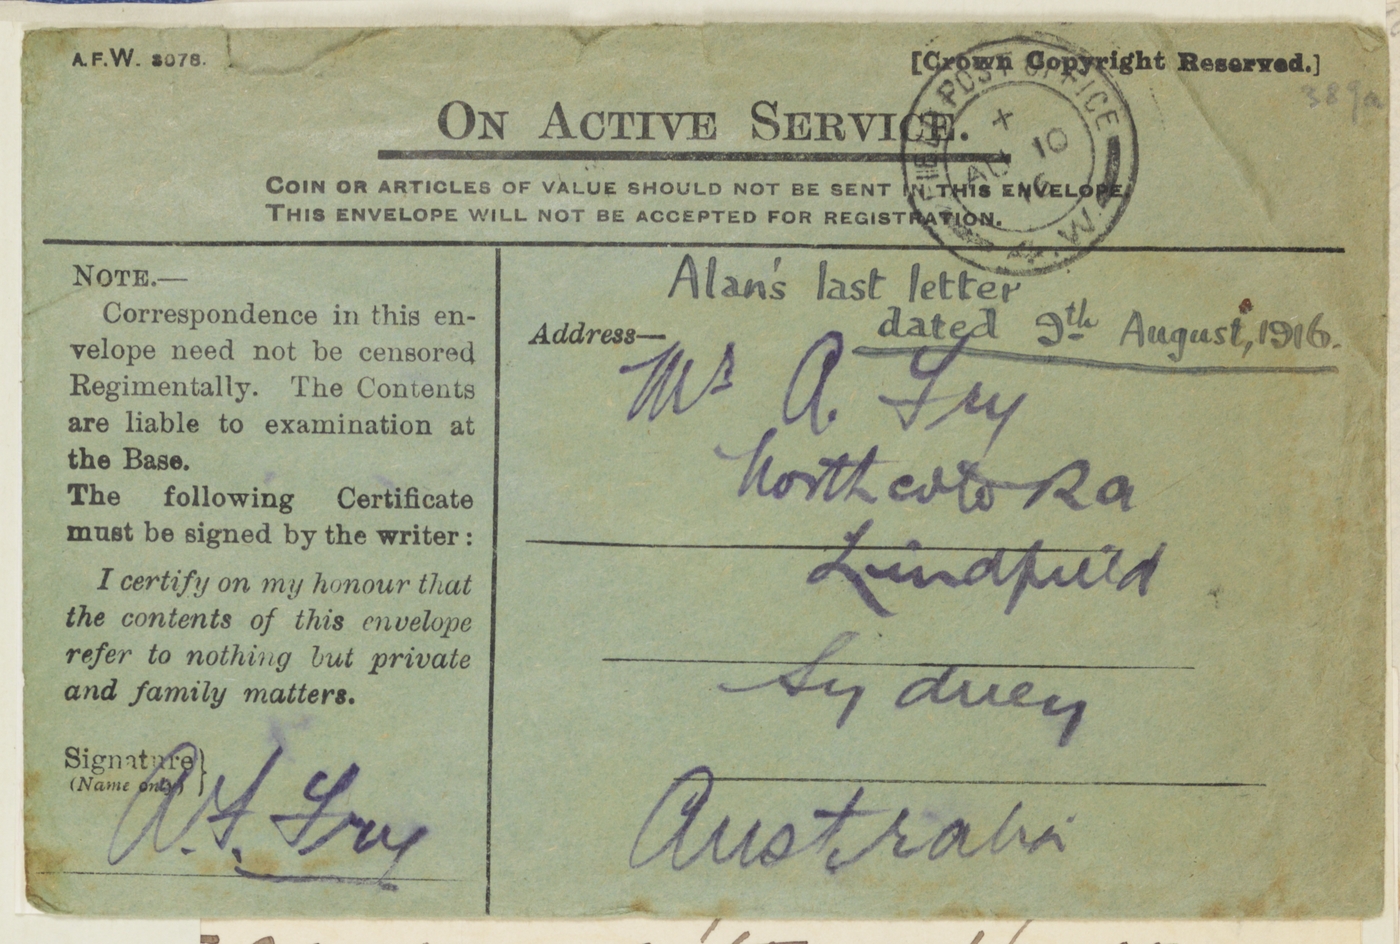 A.F.W. 3078.
[Crown Copyright Reserved.]
389a
ON ACTIVE SERVICE.
FIELD POST OFFICE
X
AU 10
16
COIN OR ARTICLES OF VALUE SHOULD NOT BE SENT IN THIS ENVELOPE.
THIS ENVELOPE WILL NOT BE ACCEPTED FOR REGISTRATION.
NOTE.—
Correspondence in this en-
velope need not be censored
Regimentally. The Contents
are liable to examination at
the Base.
The following Certificate
must be signed by the writer:
I certify on my honour that
the contents of this envelope
refer to nothing but private
and family matters.
Signature
(Name only)
A. F. Fry
Alan's last letter
dated 9th August, 1916.
Address—
Mr A. Fry
Northcote Rd
Lindfield
Sydney
Australia